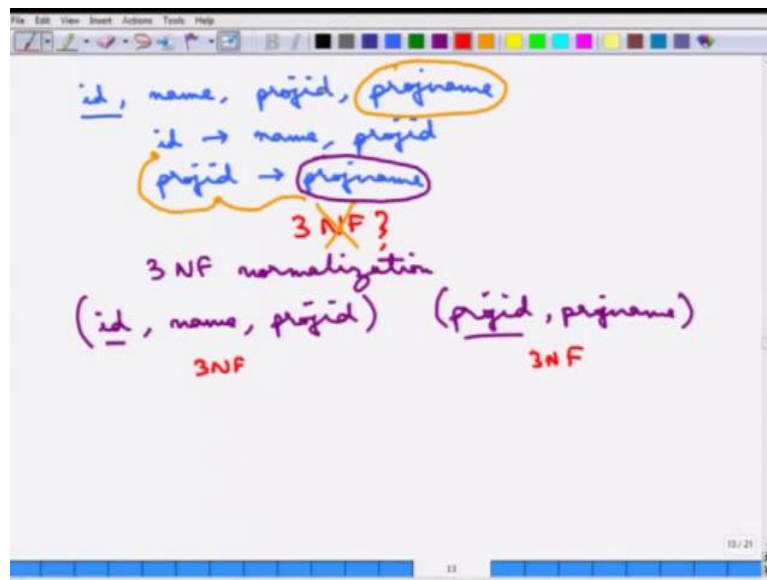 File Edit View Insert Actions Tools Help
id, name, projid, projname
id → name, projid
projid → projname
3 NF ?
3 NF normalization
(id, name, projid) (projid, projname)
3NF 3NF
13/21
13